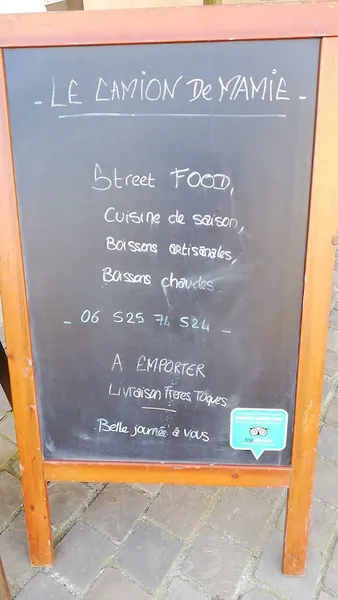 - LE CAMION De MAMIE -
Street FOOD,
Cuisine de saison,
Boissons artisanales,
Boissons chaudes
- 06 525 74 524 -
A EMPORTER
Livraison Frères Toques
Belle journée à vous